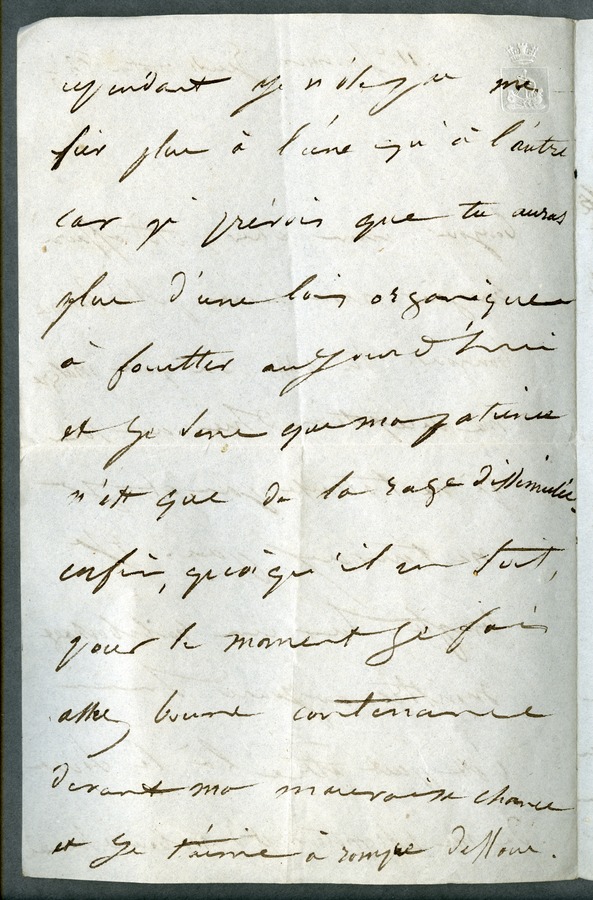 cependant je n'ose pas me
fier plus à l'une qu'à l'autre
car je prévois que tu auras
plus d'une lois organique
à fouetter aujourd'hui
et je sens que ma patience
n'est que de la rage dissimulée.
enfin, quoiqu'il en soit,
pour le moment je fais
assez bonne contenance
devant ma mauvaise chance
et je t'aime à rompre